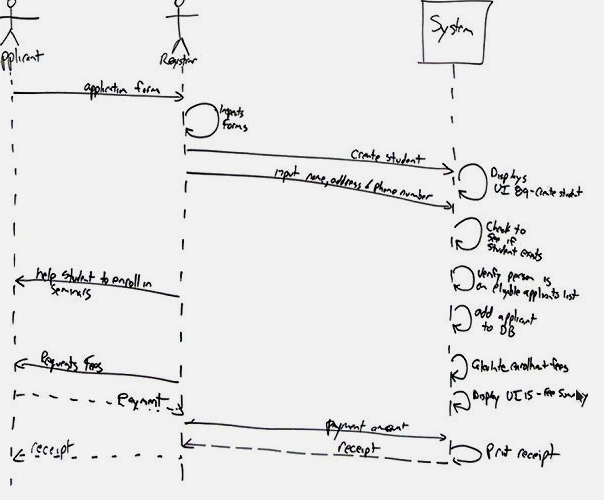 Applicant
Registrar
System
application form
Inspects
forms
Create student
Displays
UI 89-Create student
Input name, address & phone number
Check to
see if
student exists
help student to enroll in
seminars
verify person is
on eligible applicants list
add applicant
to DB
Requests fees
Calculate enrollment fees
Display UI 15 - Fee Summary
Payment
payment amount
receipt
receipt
Print receipt